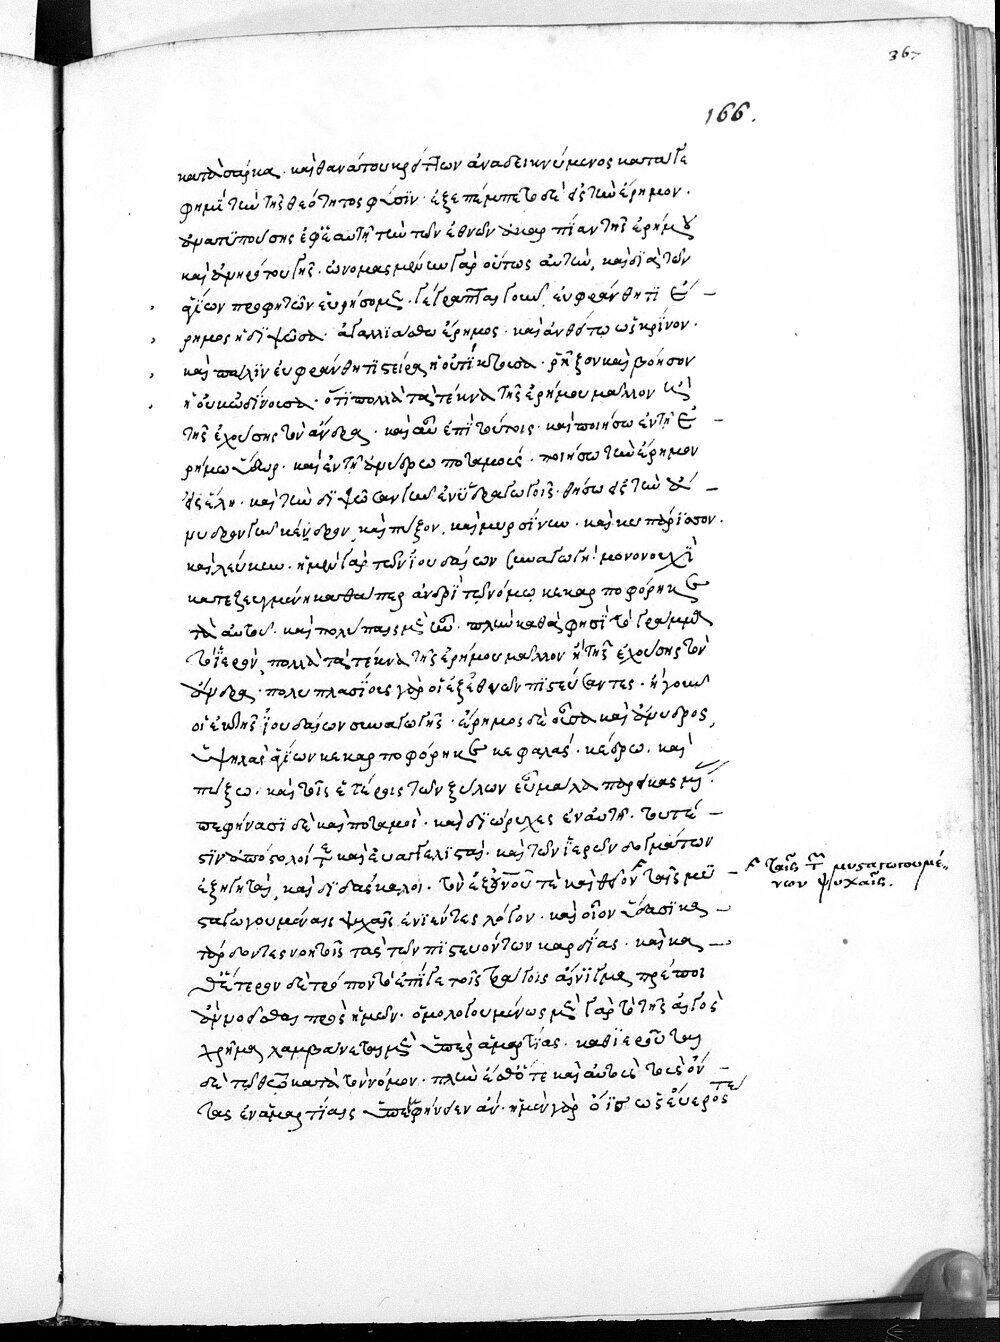 367
166.
κατὰ σάρκα· καὶ θανάτου κρείττων ἀναδεικνύμενος κατά γε
φημὶ τὴν τῆς θεότητος φύσιν· ἐξεπέμπετο δὲ εἰς τὴν ἔρημον·
τῶν ἐθνῶν ἀκαρπίαν τῆς ἐρήμου
καὶ γῆς· ὠνομασμένην γὰρ οὕτως αὐτὴν, καὶ διὰ τῶν
ἁγίων προφητῶν εὑρήσομεν· γέγραπται γοῦν, εὐφράνθητι ἔ-
ρημος ἡ διψῶσα· ἀγαλλιάσθω ἔρημος· καὶ ἀνθείτω ὡς κρίνον·
καὶ πάλιν εὐφράνθητι στεῖρα ἡ οὐ τίκτουσα· ῥῆξον καὶ βόησον
ἡ οὐκ ὠδίνουσα· ὅτι πολλὰ τὰ τέκνα τῆς ἐρήμου μᾶλλον ἢ
τῆς ἐχούσης τὸν ἄνδρα· καὶ αὖ ἐπὶ τούτοις· καὶ ποιήσω ἐν τῇ ἐ-
ρήμω ὕδωρ· καὶ ἐν τῇ ἀνύδρω ποταμούς· ποιήσω τὴν ἔρημον
εἰς ἕλη· καὶ τὴν διψῶσαν γῆν ἐν ὑδραγωγοῖς· θήσω εἰς τὴν ἄ-
νυδρον γῆν κέδρον, καὶ πύξον, καὶ μυρσίνην· καὶ κυπάρισσον·
καὶ λεύκην· ἡ μὲν γὰρ τῶν ἰουδαίων συναγωγὴ· μονονουχὶ
κατεζευγμένη καθάπερ ἀνδρὶ τῷ νόμῳ κεκαρποφόρηκε
τὰ αὐτοῦ· καὶ πολύπαις μὲν ἦν· πλὴν καθά φησι τὸ γράμμα
τὸ ἱερὸν, πολλὰ τὰ τέκνα τῆς ἐρήμου μᾶλλον ἢ τῆς ἐχούσης τὸν
ἄνδρα· πολυπλασίους γὰρ οἱ ἐξ ἐθνῶν πιστεύσαντες· ἤγουν
οἱ ἐκ τῆς ἰουδαίων συναγωγῆς· ἔρημος δὲ οὖσα καὶ ἄνυδρος,
ὑψηλὰς ἁγίων κεκαρποφόρηκε κεφαλάς· κέδρω· καὶ
πύξω· καὶ τοῖς ἑτέροις τῶν ξύλων εὖ μάλα
πεφήνασι δὲ καὶ ποταμοὶ· καὶ διώρυχες ἐν αὐτῇ· τουτέ-
στιν ἀπόστολοί τε καὶ εὐαγγελισταὶ· καὶ τῶν ἱερῶν δογμάτων
ἐξηγηταὶ, καὶ διδάσκαλοι· τὸν ἐξ οὐρανοῦ τε καὶ θεῖον ταῖς μυ-
σταγωγουμέναις ψυχαῖς ἐνιέντες λόγον· καὶ οἷον ὕδασι κα-
τάρδοντες νοητοῖς τὰς τῶν πιστευόντων καρδίας· καὶ κα-
θ' ἕτερον δὲ τρόπον τὸ ἐπί γε τοῖς τράγοις αἴνιγμα πρέποι
ἂν μοδοθαι πρὸς ἡμῶν· ὁμολογουμένως μὲν γὰρ τὸ τῆς αἰγὸς
χρῆμα λαμβάνεται μὲν ὑπὲρ ἁμαρτίας· καθιεροῦται
δὲ τῷ θεῷ κατὰ τὸν νόμον· πλὴν ἔσθ' ὅτε καὶ αὐτοὺς τοὺς ὄν-
τας ἐν ἁμαρτίαις ὑπεφήνειεν ἄν· ἡ μὲν γὰρ ὄϊς ὡς εὔερός
ταῖς τῶν μυσταγωγουμέ-
νων ψυχαῖς.